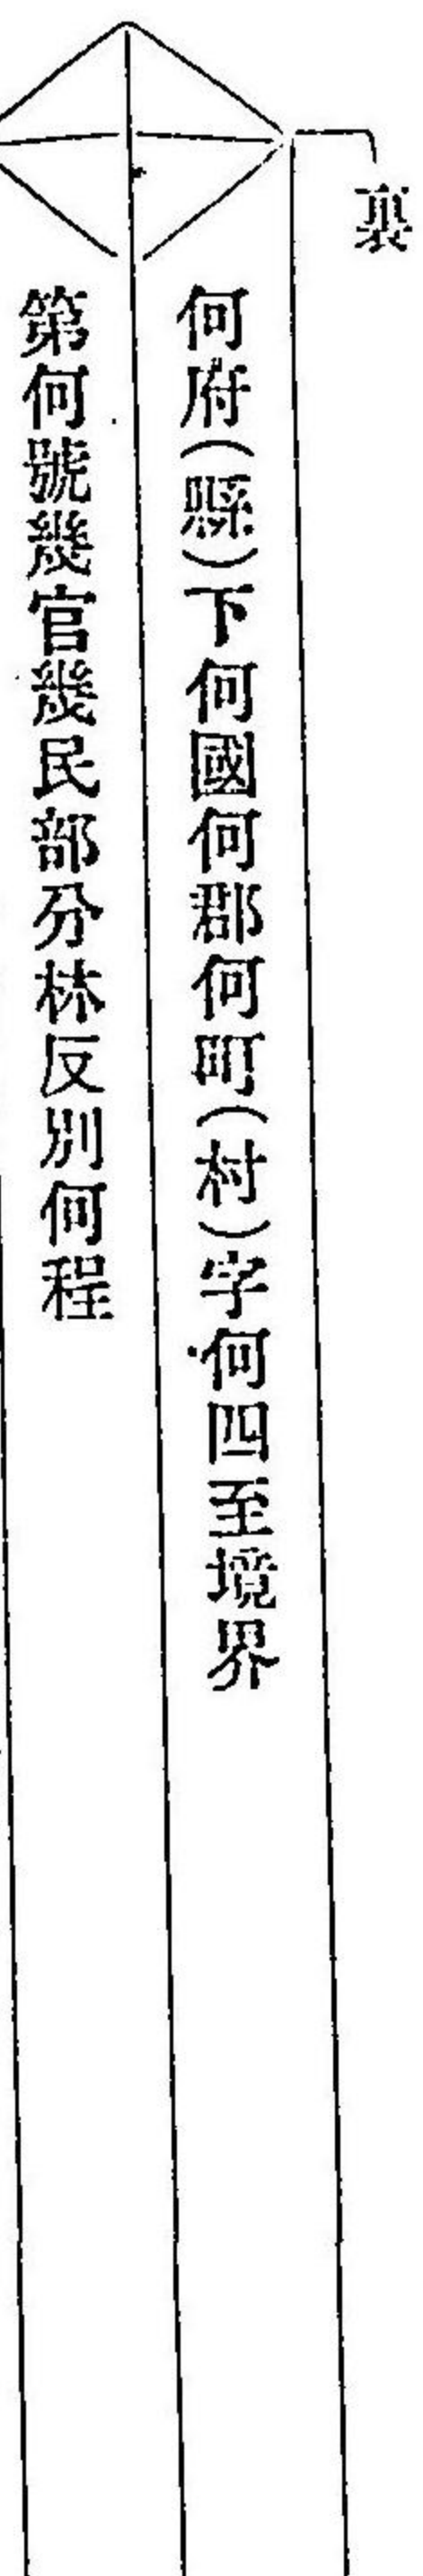 裏
何府(縣)下何國何郡何町(村)字何四至境界
第何號幾官幾民部分林反別何程